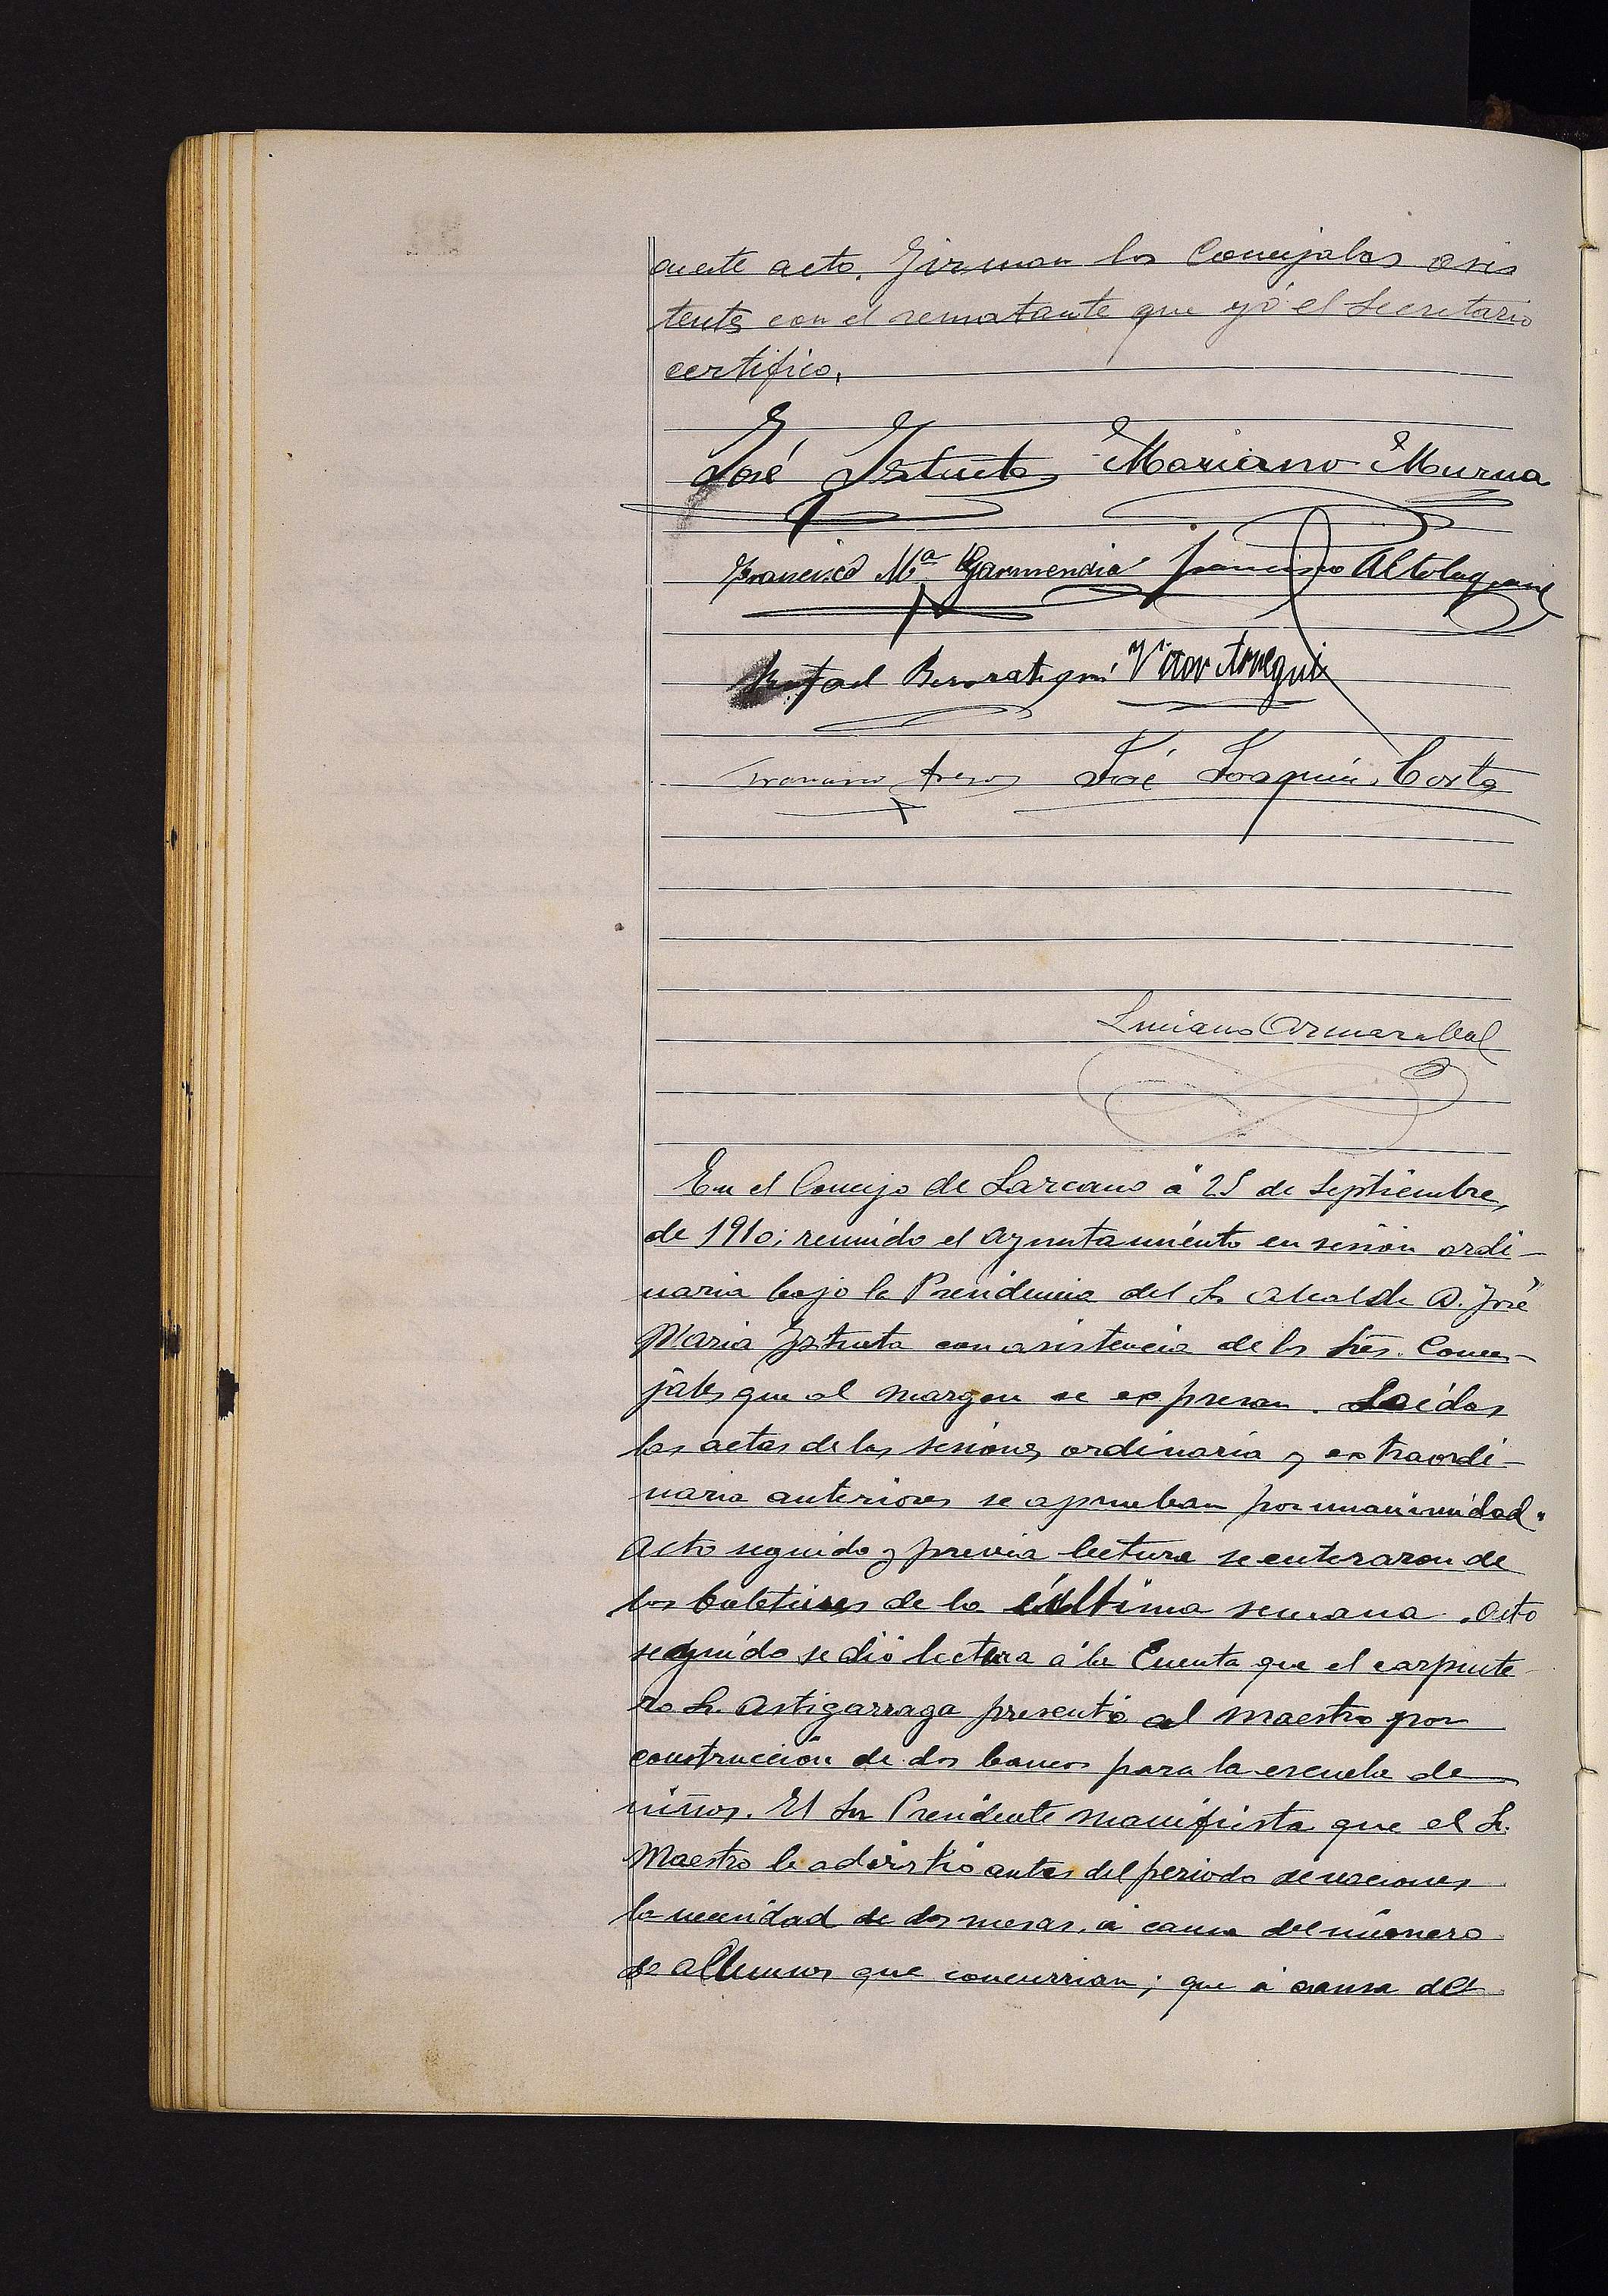 en este acto. Firman los Concejales asis
tentes con el rematante que yó el Secretario
certifico.
José Istueta Mariano Murua
Francisco Mª Garmendia Francisco Altolaguirre
Rafael Berrategui
José Joaquin Costa
Luciano Armaraleal
En el Concejo de Lazcano á 25 de Septiembre,
de 1910; reunido el Ayuntamiento en sesión ordi-
naria bajo la Presidencia del Sr Alcalde D. José
Maria Istueta con asistencia de los Sres. Conce-
jales que al margen se expresan. Leídas
las actas de las sesiones ordinaria y extraordi-
naria anteriores se aprueban por unanimidad.
Acto seguido y previa lectura se enteraron de
los boletines de la última semana. Acto
seguido se dió lectura á la Cuenta que el carpinte
ro Sr. Astigarraga presentó al maestro por
construcción de dos bancos para la escuela de
niños. El Sr Presidente manifiesta que el Sr.
Maestro le advirtió antes del periodo de vacaciones
la necesidad de dos mesas, á causa del número
de alumnos que concurrian; que á causa del